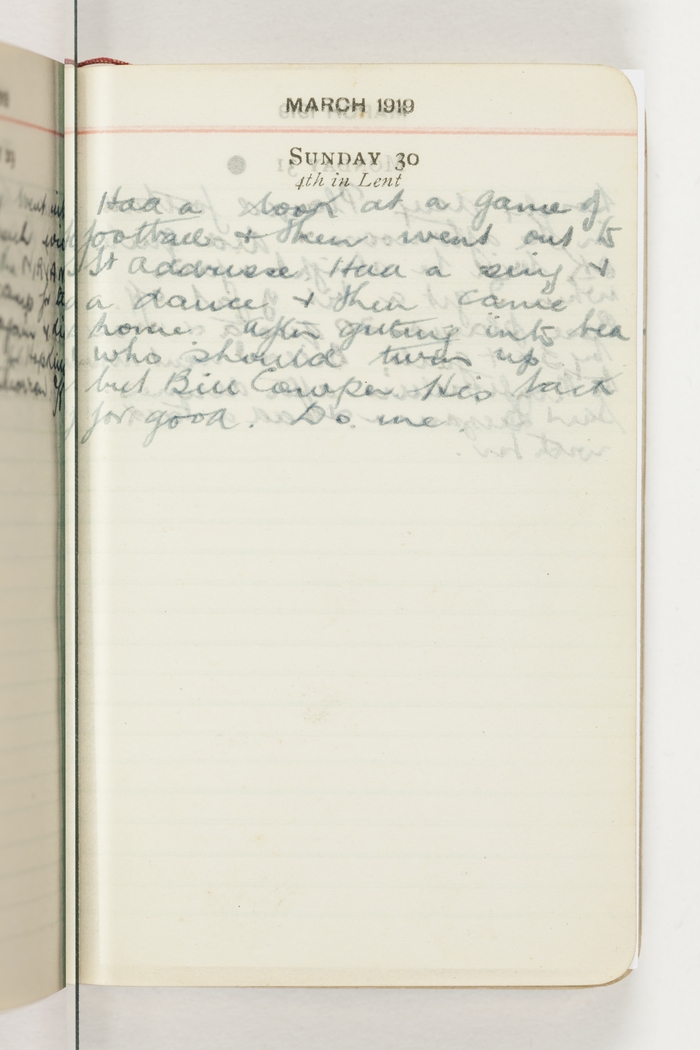 MARCH 1919
SUNDAY 30
4th in Lent
Had a look at a game of
football & then went out to
St Addresse Had a sing &
a dance & then came
home. After getting into bed
who should turn up
but Bill Cowper. His back
for good. Do me.